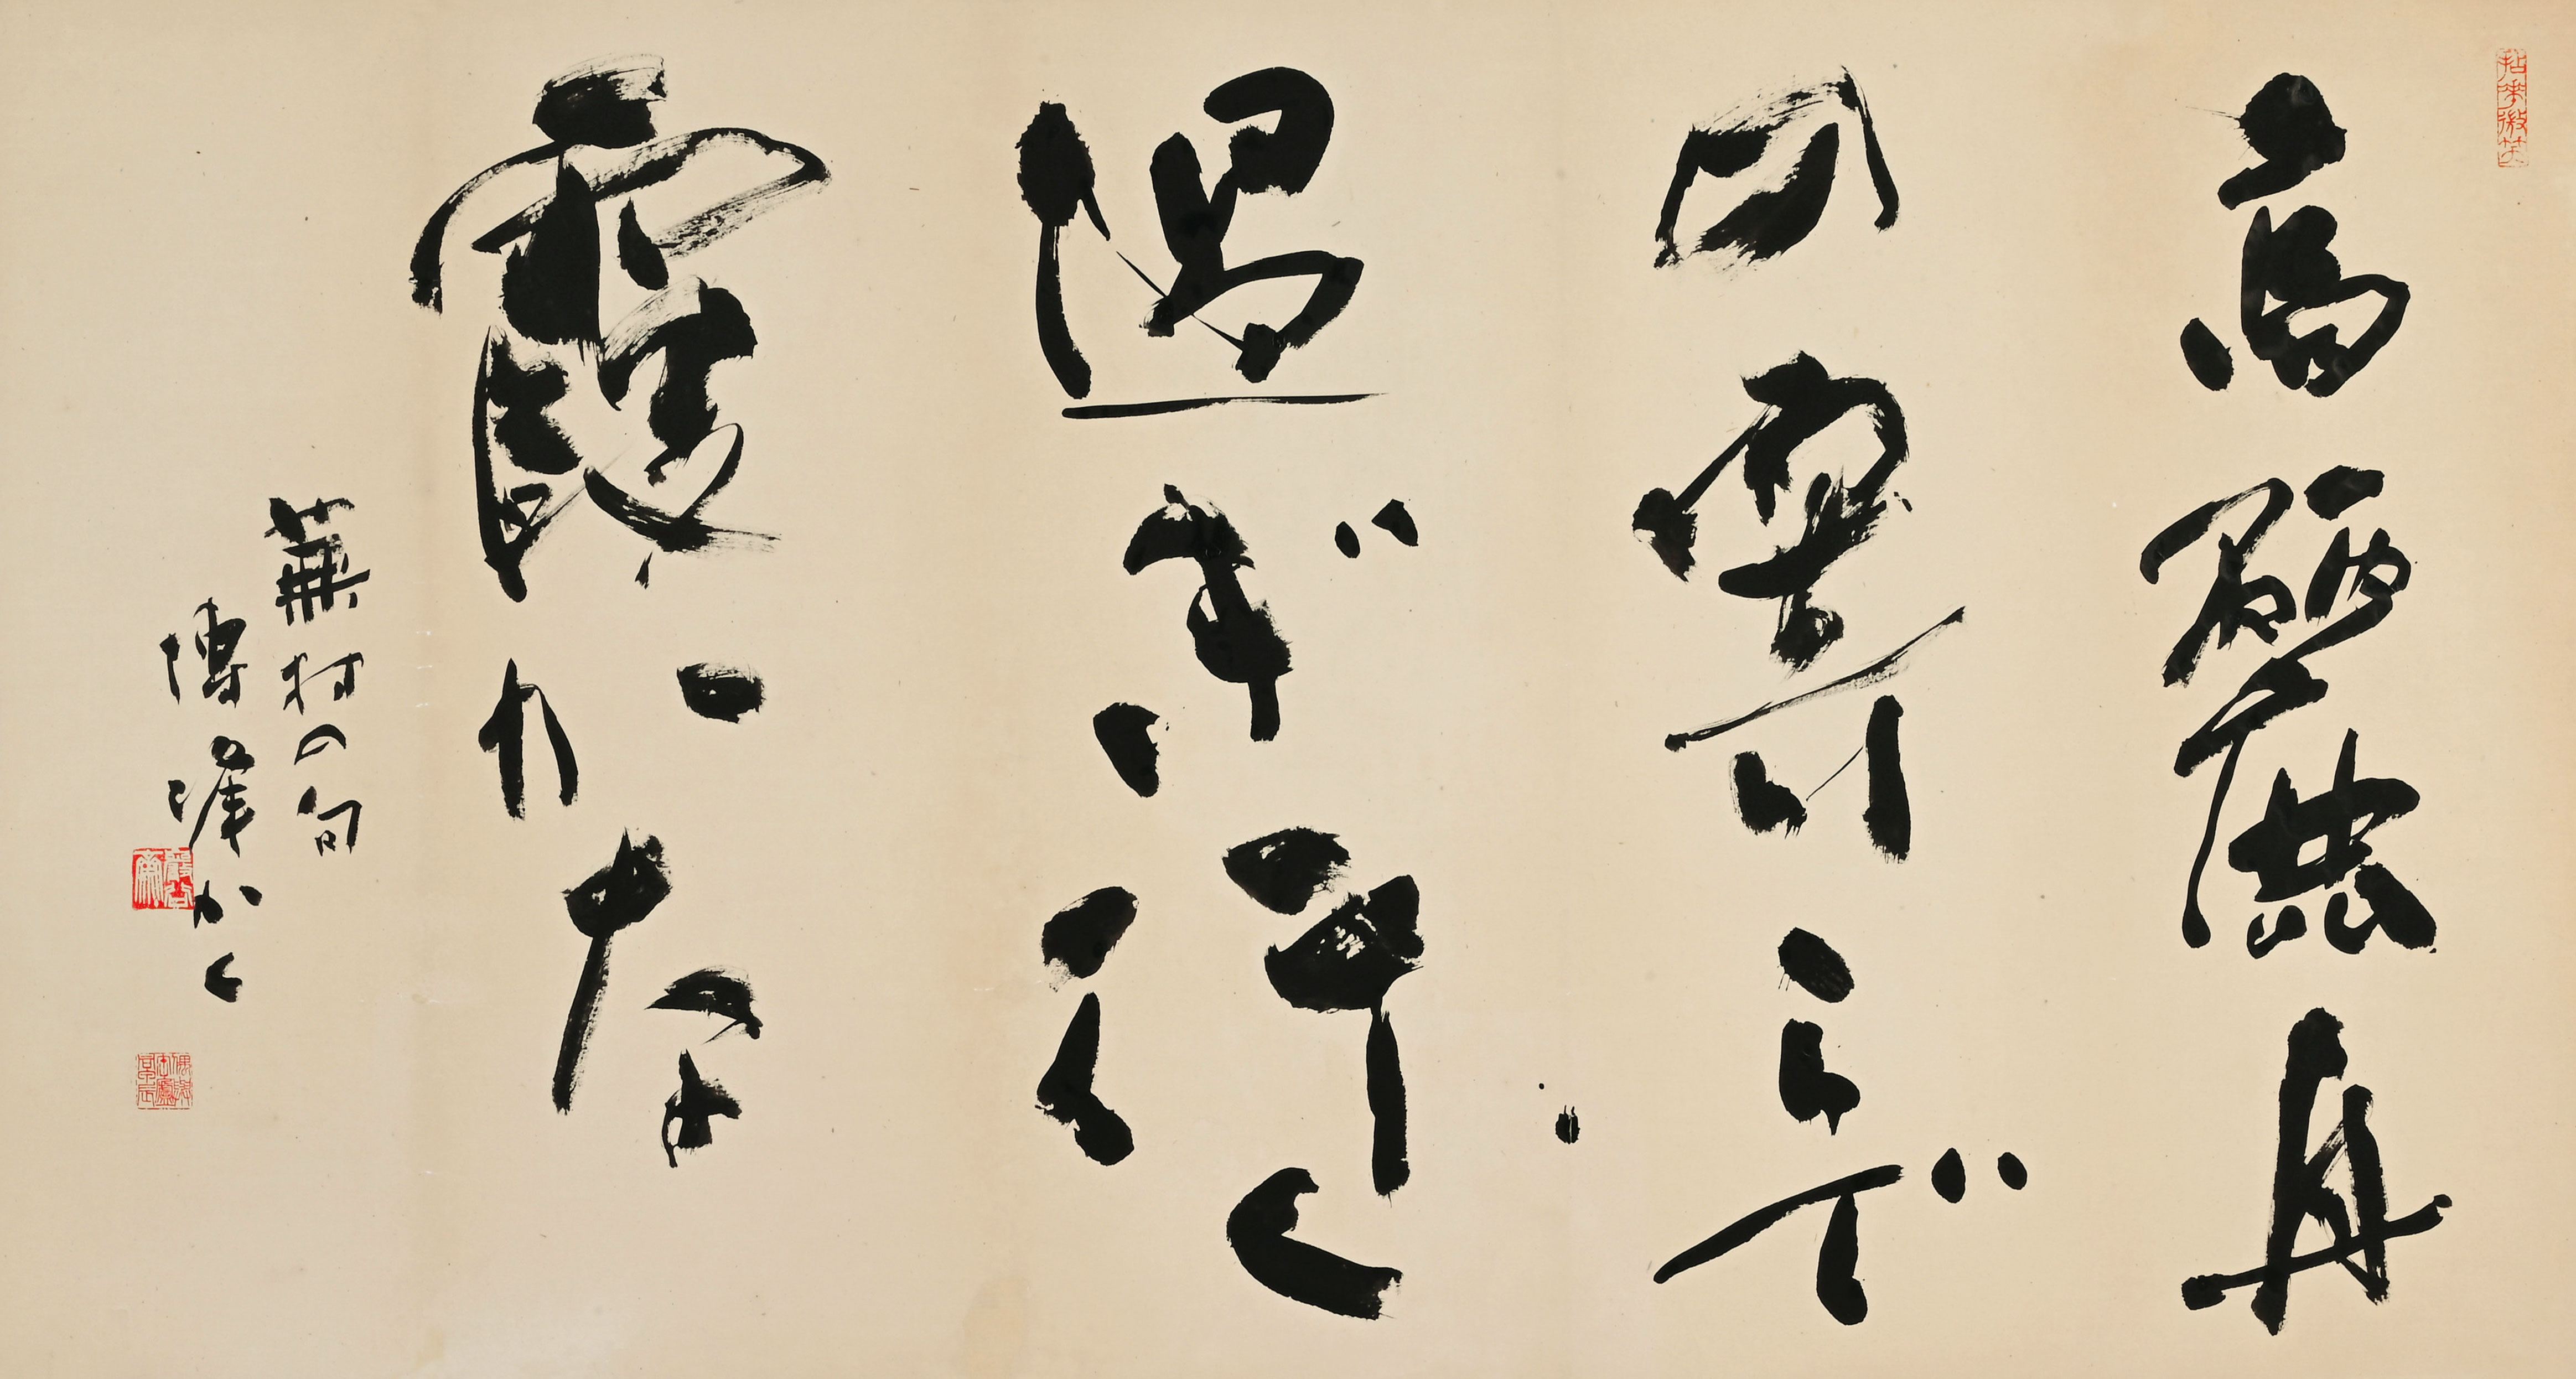 高麗舟
の寄らで
過ぎ行く
霞かな
蕪村の句
かく
拈華微笑